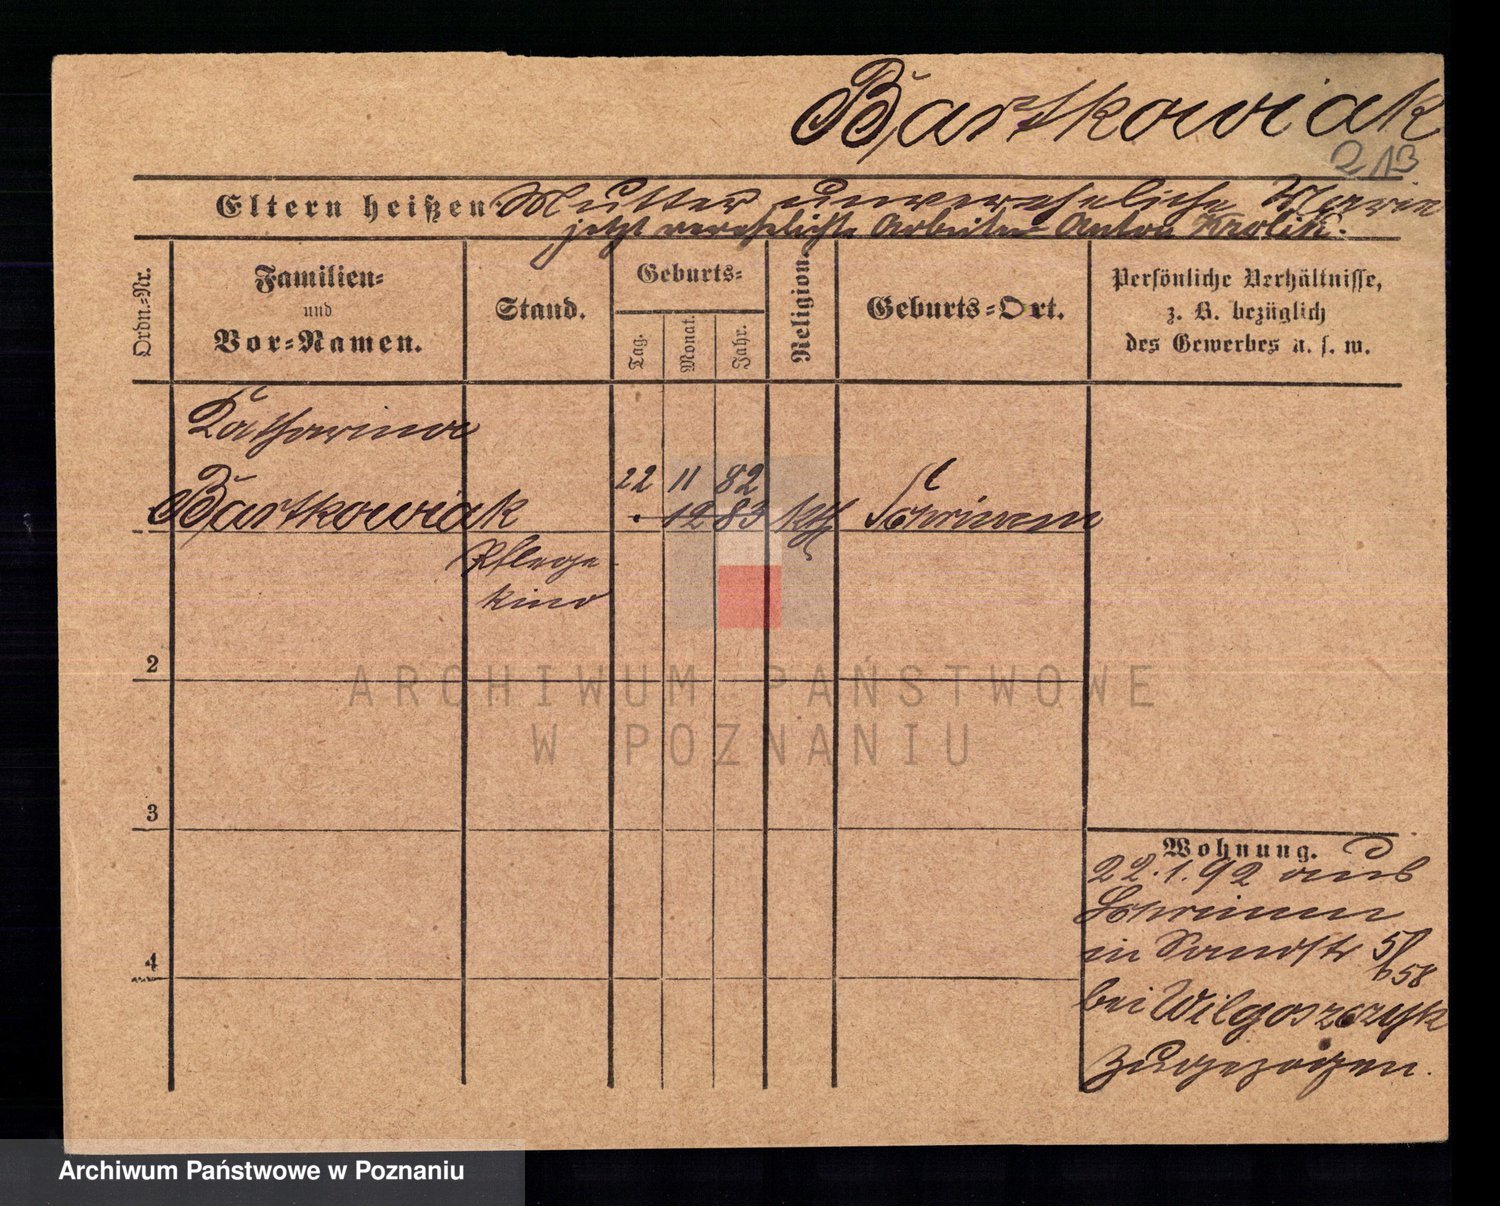 Bartkowiak
213
Eltern heißen: Mutter unvereheliche Marie
jetzt verehelichte Arbeiter Anton Krolik.
Ordn.-Nr.
Familien-
und
Vor-Namen.
Stand.
Geburts-
Tag.
Monat.
Jahr.
Religion.
Geburts-Ort.
Persönliche Verhältnisse,
z. B. bezüglich
des Gewerbes u. s. w.
Catharina
22 11 82
Bartkowiak . 12 83 kth Schrimm
Pflege-
kind
2
3
4
ARCHIWUM PAŃSTWOWE
W POZNANIU
Wohnung.
22.1.92 aus
Schrimm
in Sandstr 5/
b58
bei Wilgoszczyk
zugezogen.
Archiwum Państwowe w Poznaniu